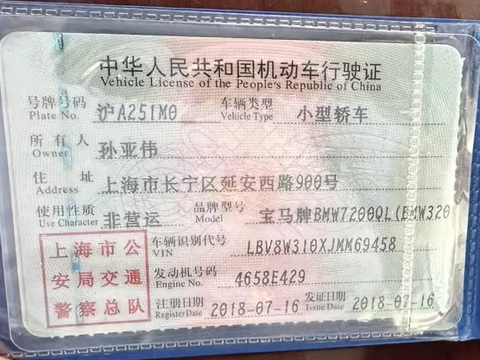 中华人民共和国机动车行驶证
Vehicle License of the People's Republic of China
号牌号码 沪A251M0 车辆类型 小型轿车
Plate No. Vehicle Type
所有人 孙亚伟
Owner
住址 上海市长宁区延安西路900号
Address
使用性质 非营运 品牌型号 宝马牌BMW7200QL(BMW320
Use Character Model
上海市公 车辆识别代号 LBV8W310XJMM69458
VIN
安局交通 发动机号码 4658E429
Engine No.
警察总队 注册日期 2018-07-16 发证日期 2018-07-16
Register Date Issue Date